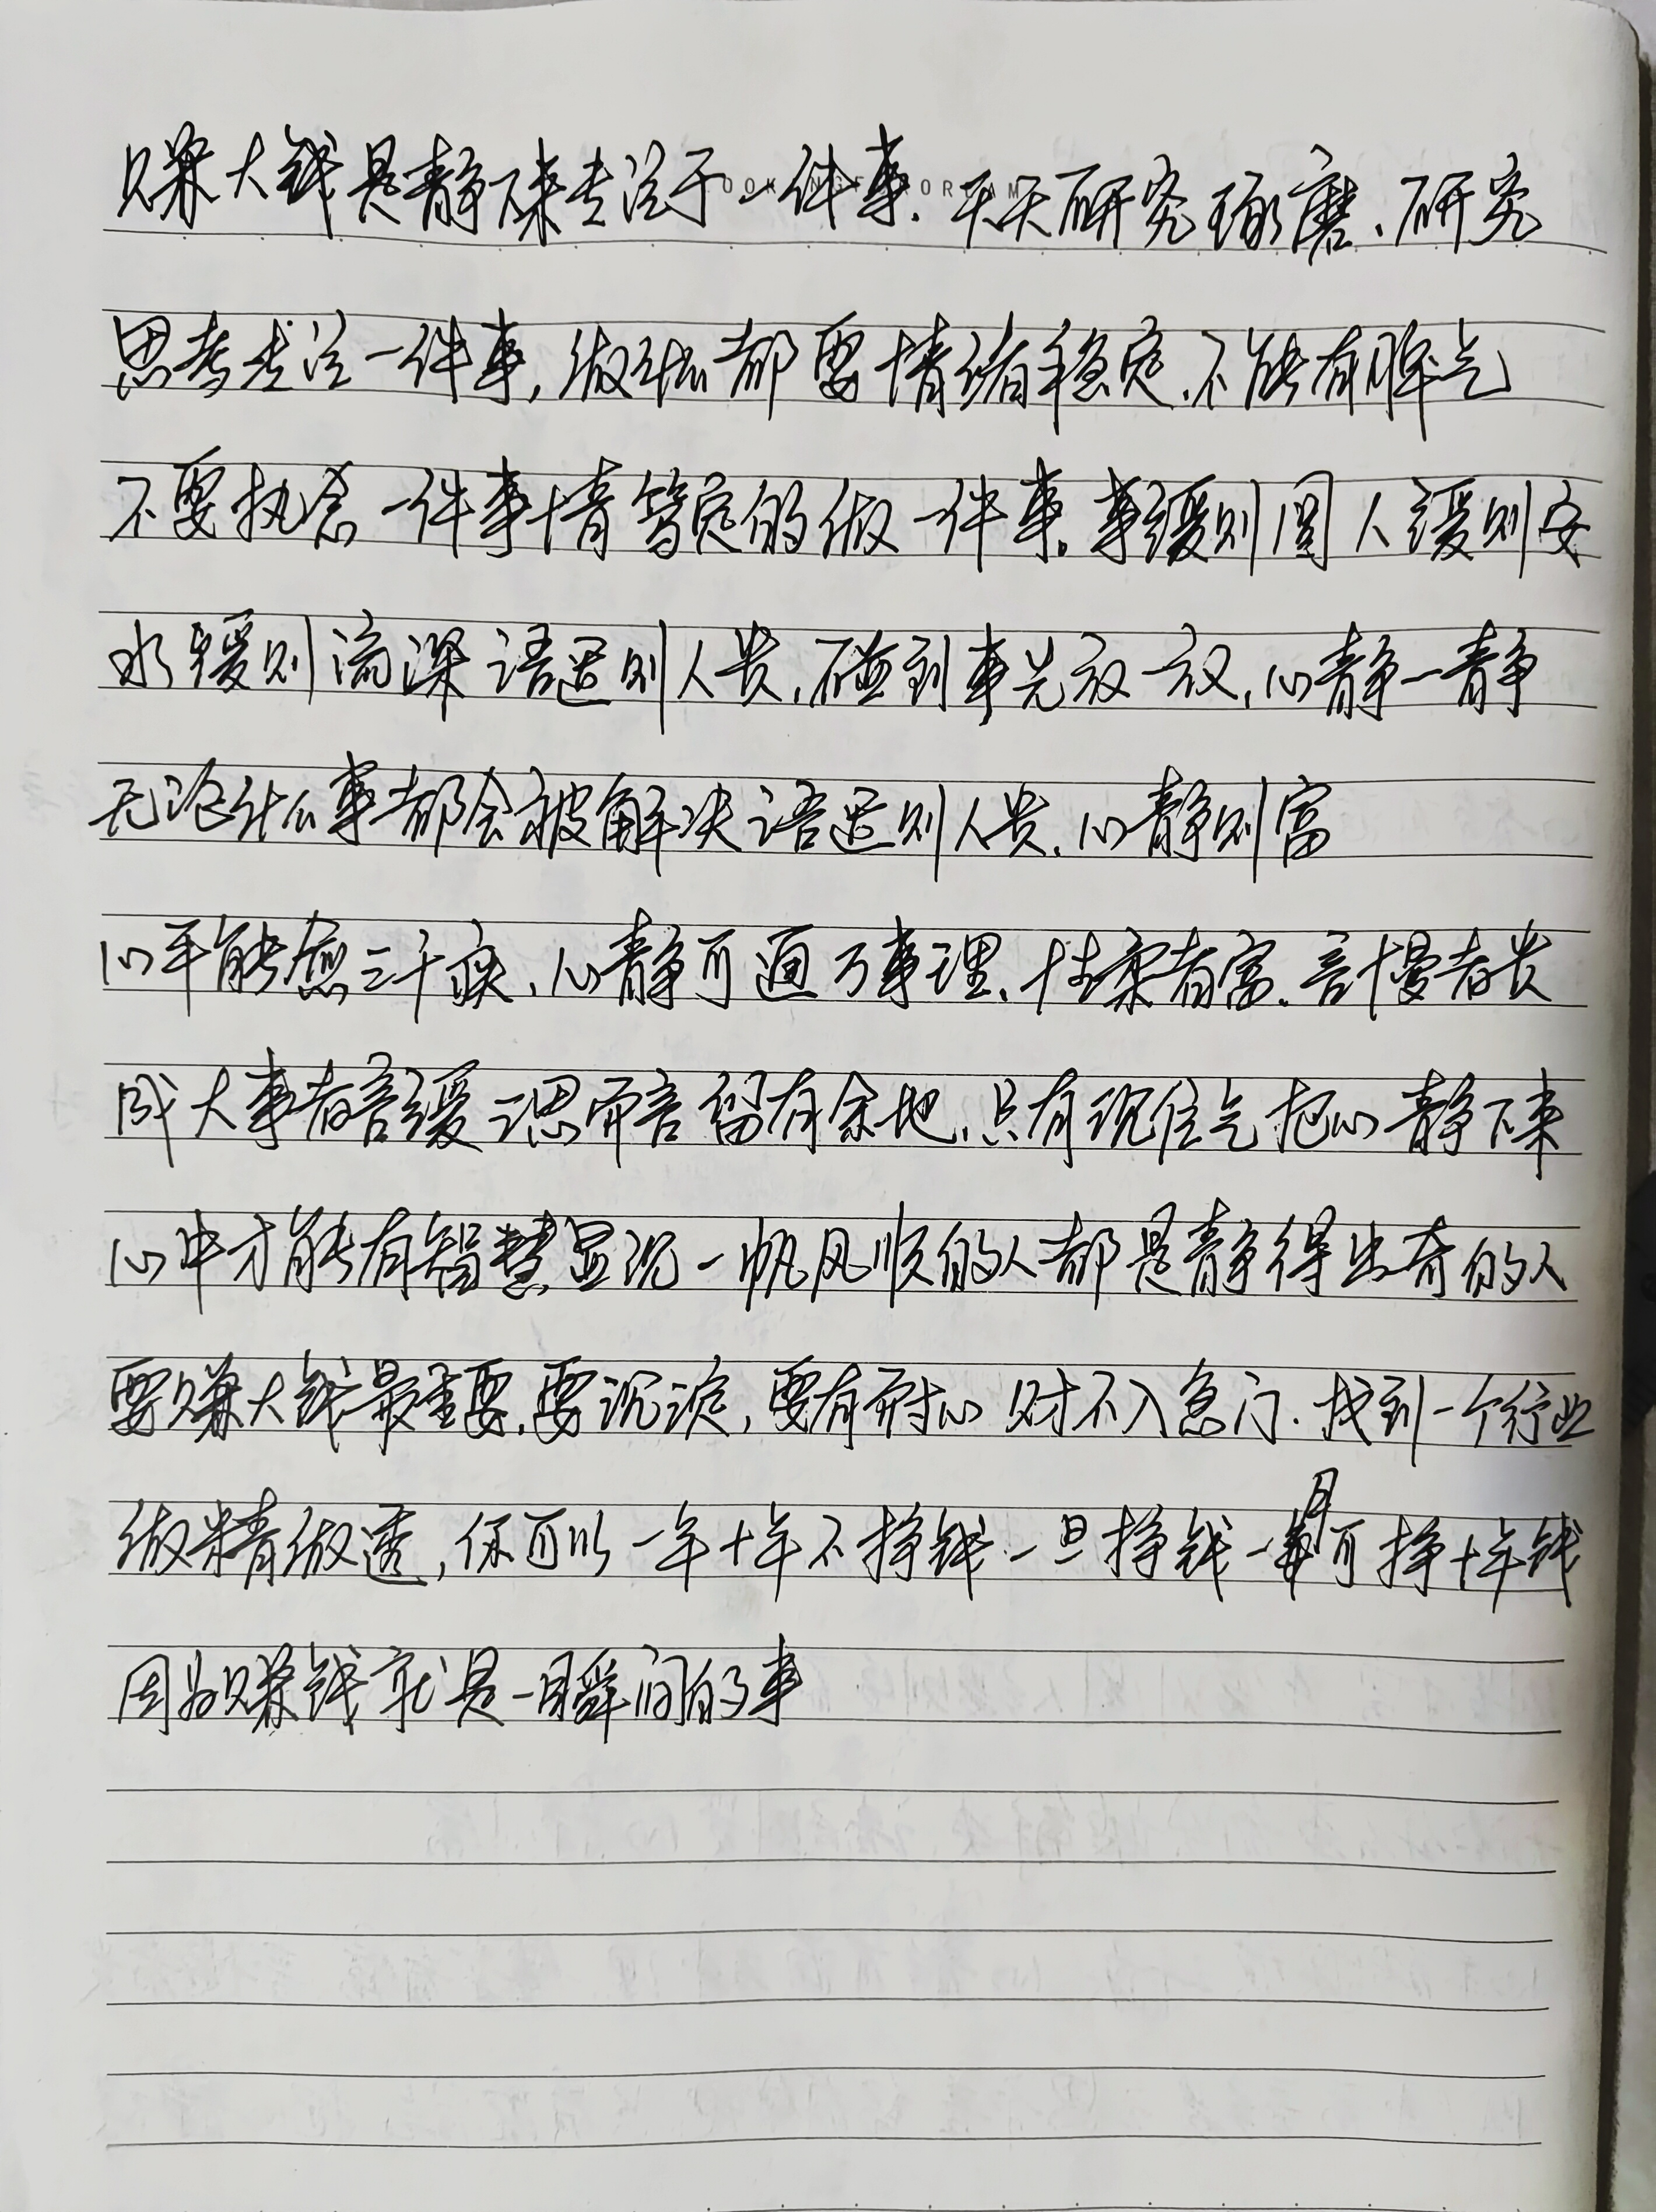 赚大钱是静下来专注于一件事.天天研究琢磨、研究
思考专注一件事,做啥都要情绪稳定.不能有脾气
不要执念一件事情笃定的做一件事.事缓则圆人缓则安
水缓则流深语迟则人贵.碰到事先放一放,心静一静
无论什么事都会被解决语迟则人贵.心静则富
心平能愈三千疾、心静可通万事理、性柔者富.言慢者贵
成大事者言缓三思而言留有余地.只有沉住气把心静下来
心中才能有智慧显现一帆风顺的人都是静得出奇的人
要赚大钱最重要.要沉淀,要有耐心财不入急门.找到一个行业
做精做透,你可以一年十年不挣钱.一旦挣钱一月可挣十年钱
因为赚钱就是一瞬间的事